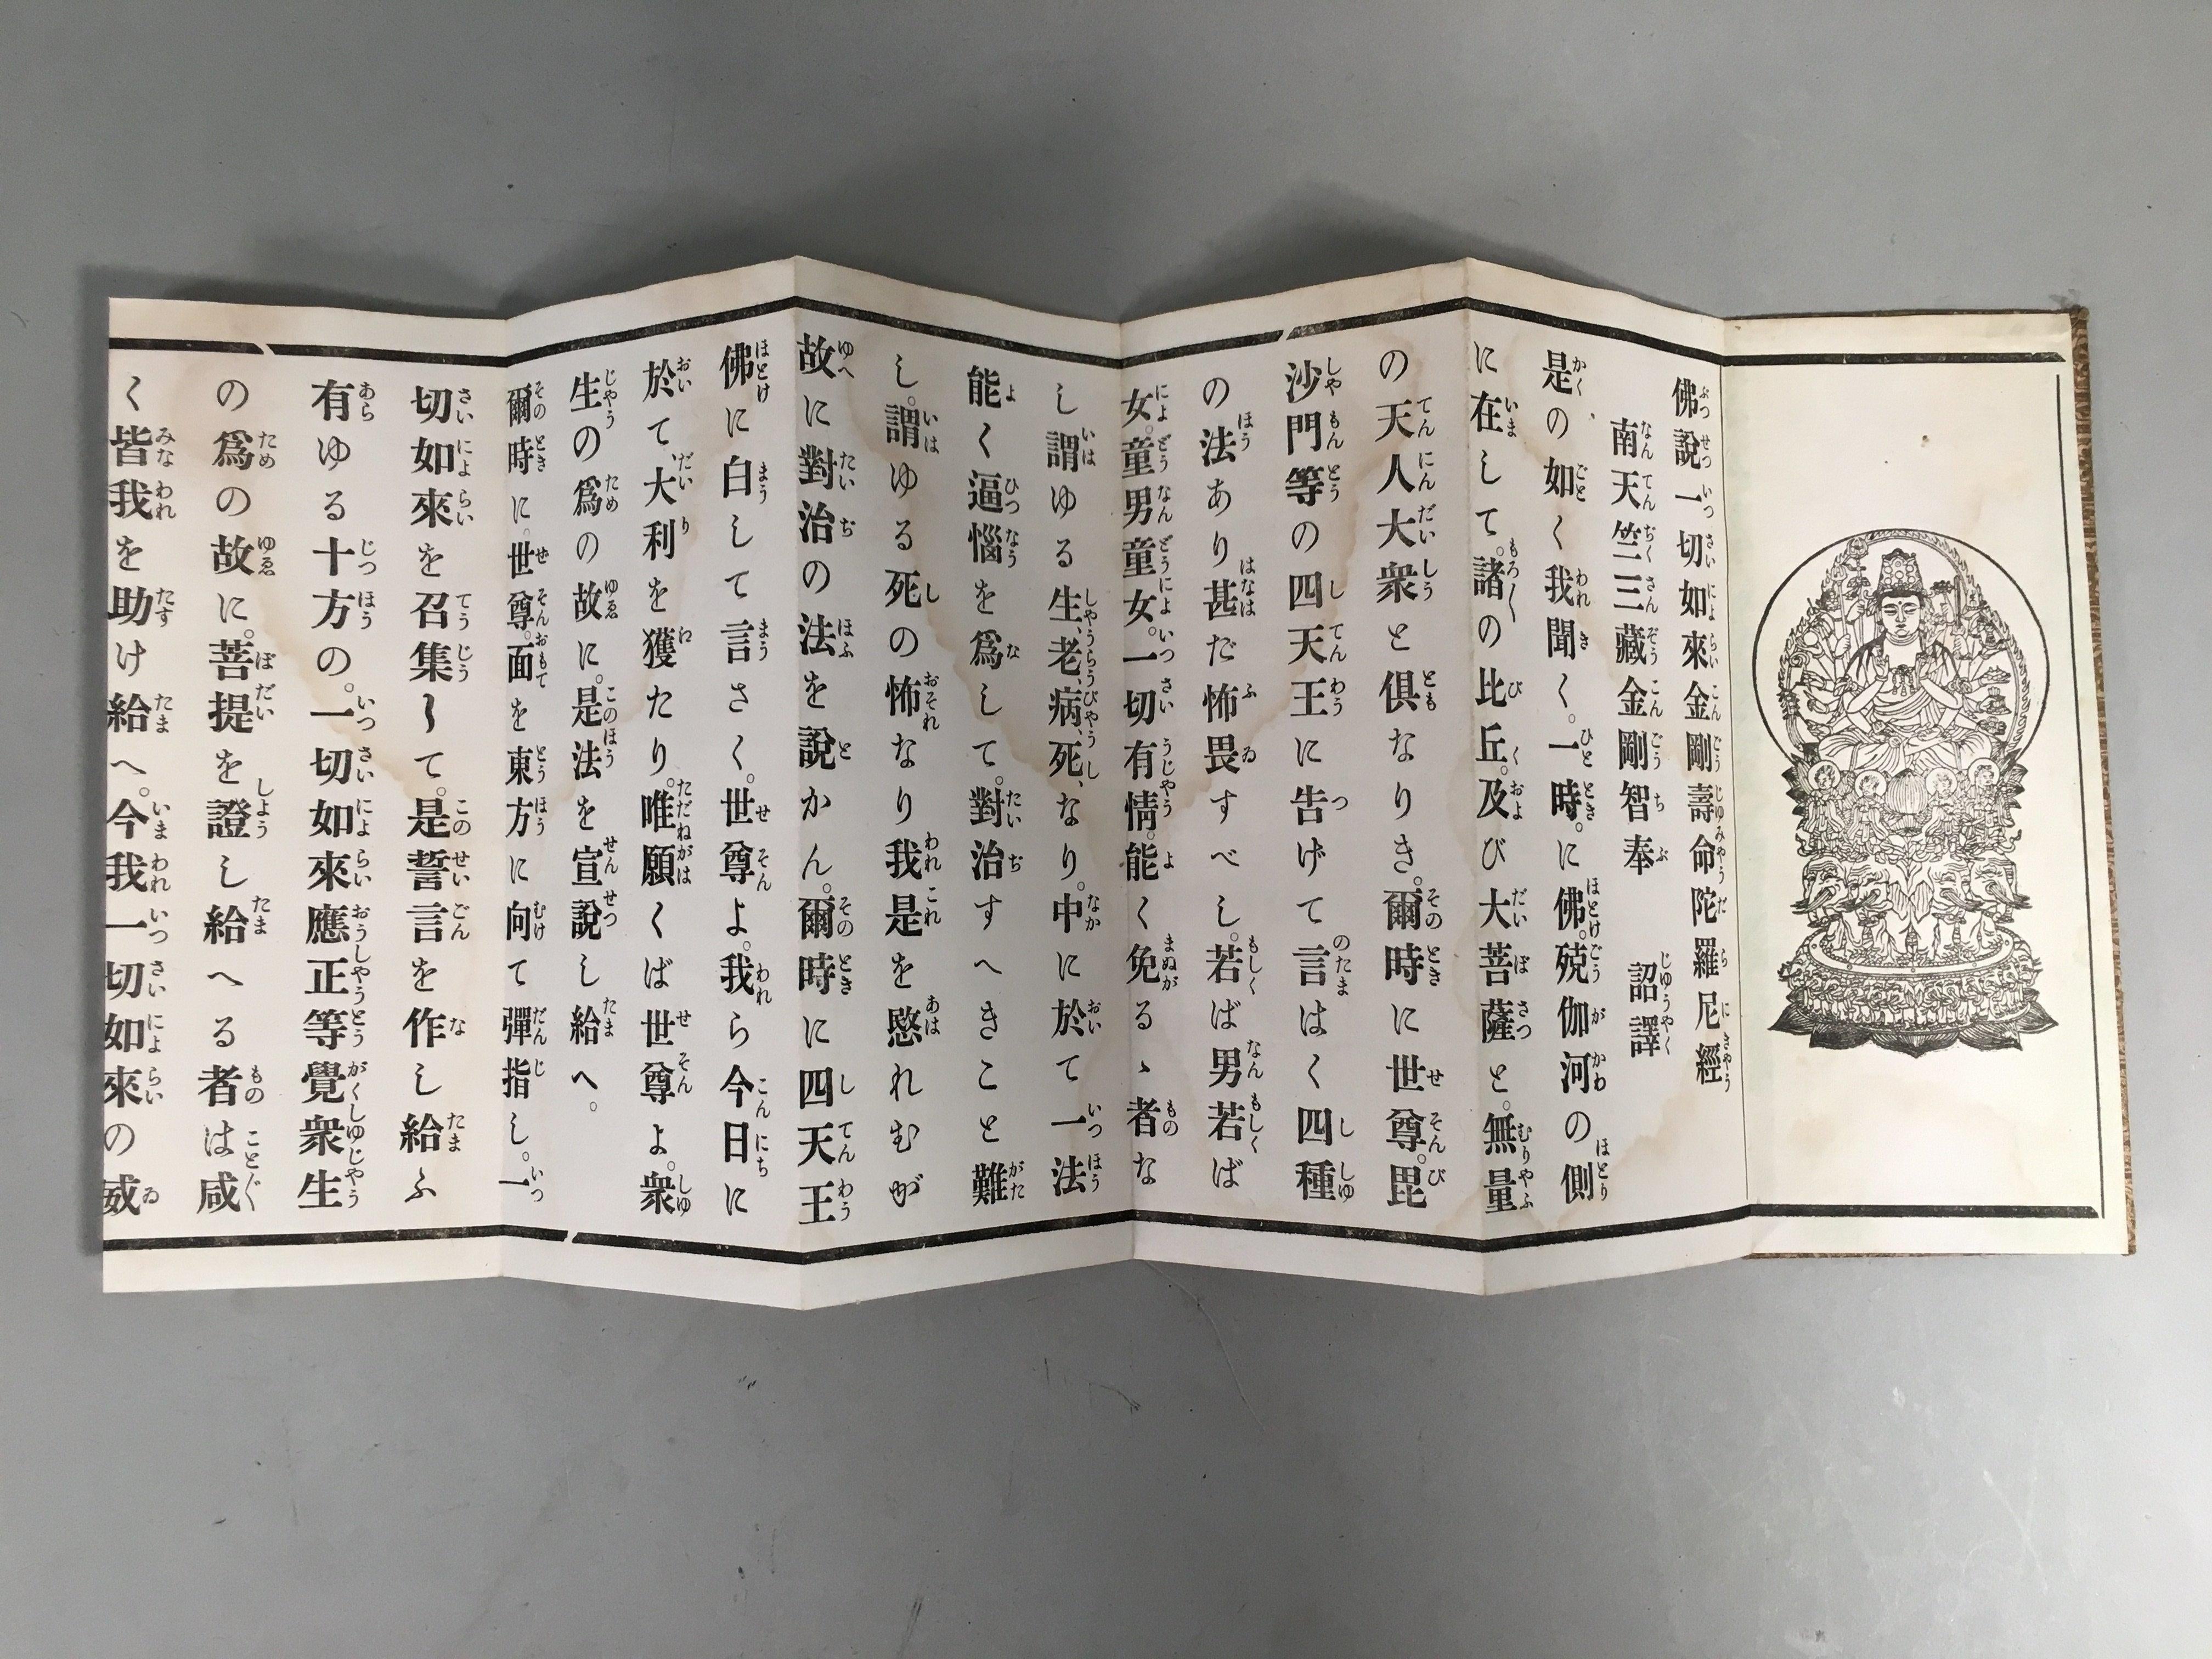 佛說一切如來金剛壽命陀羅尼經
南天竺三藏金剛智奉　詔譯
是の如く我聞く。一時。に佛。殑伽河の側
に在して。諸の比丘。及び大菩薩と。無量
の天人大衆と俱なりき。爾時に世尊。毘
沙門等の四天王に告げて言はく四種
の法あり甚だ怖畏すべし。若ば男若ば
女。童男童女。一切有情。能く免るゝ者な
し謂ゆる生、老、病、死、なり。中に於て一法
能く逼惱を爲して。對治すへきこと難
し。謂ゆる死の怖なり我是を愍れむが
故に對治の法を說かん。爾時に四天王
佛に白して言さく。世尊よ。我ら今日に
於て、大利を獲たり。唯願くば世尊よ。衆
生の爲の故に。是法を宣說し給へ。
爾時に。世尊。面を東方に向て彈指し。一
切如來を召集して。是誓言を作し給ふ
有ゆる十方の。一切如來應正等覺衆生
の爲の故に。菩提を證し給へる者は咸
く皆我を助け給へ。今我一切如來の威